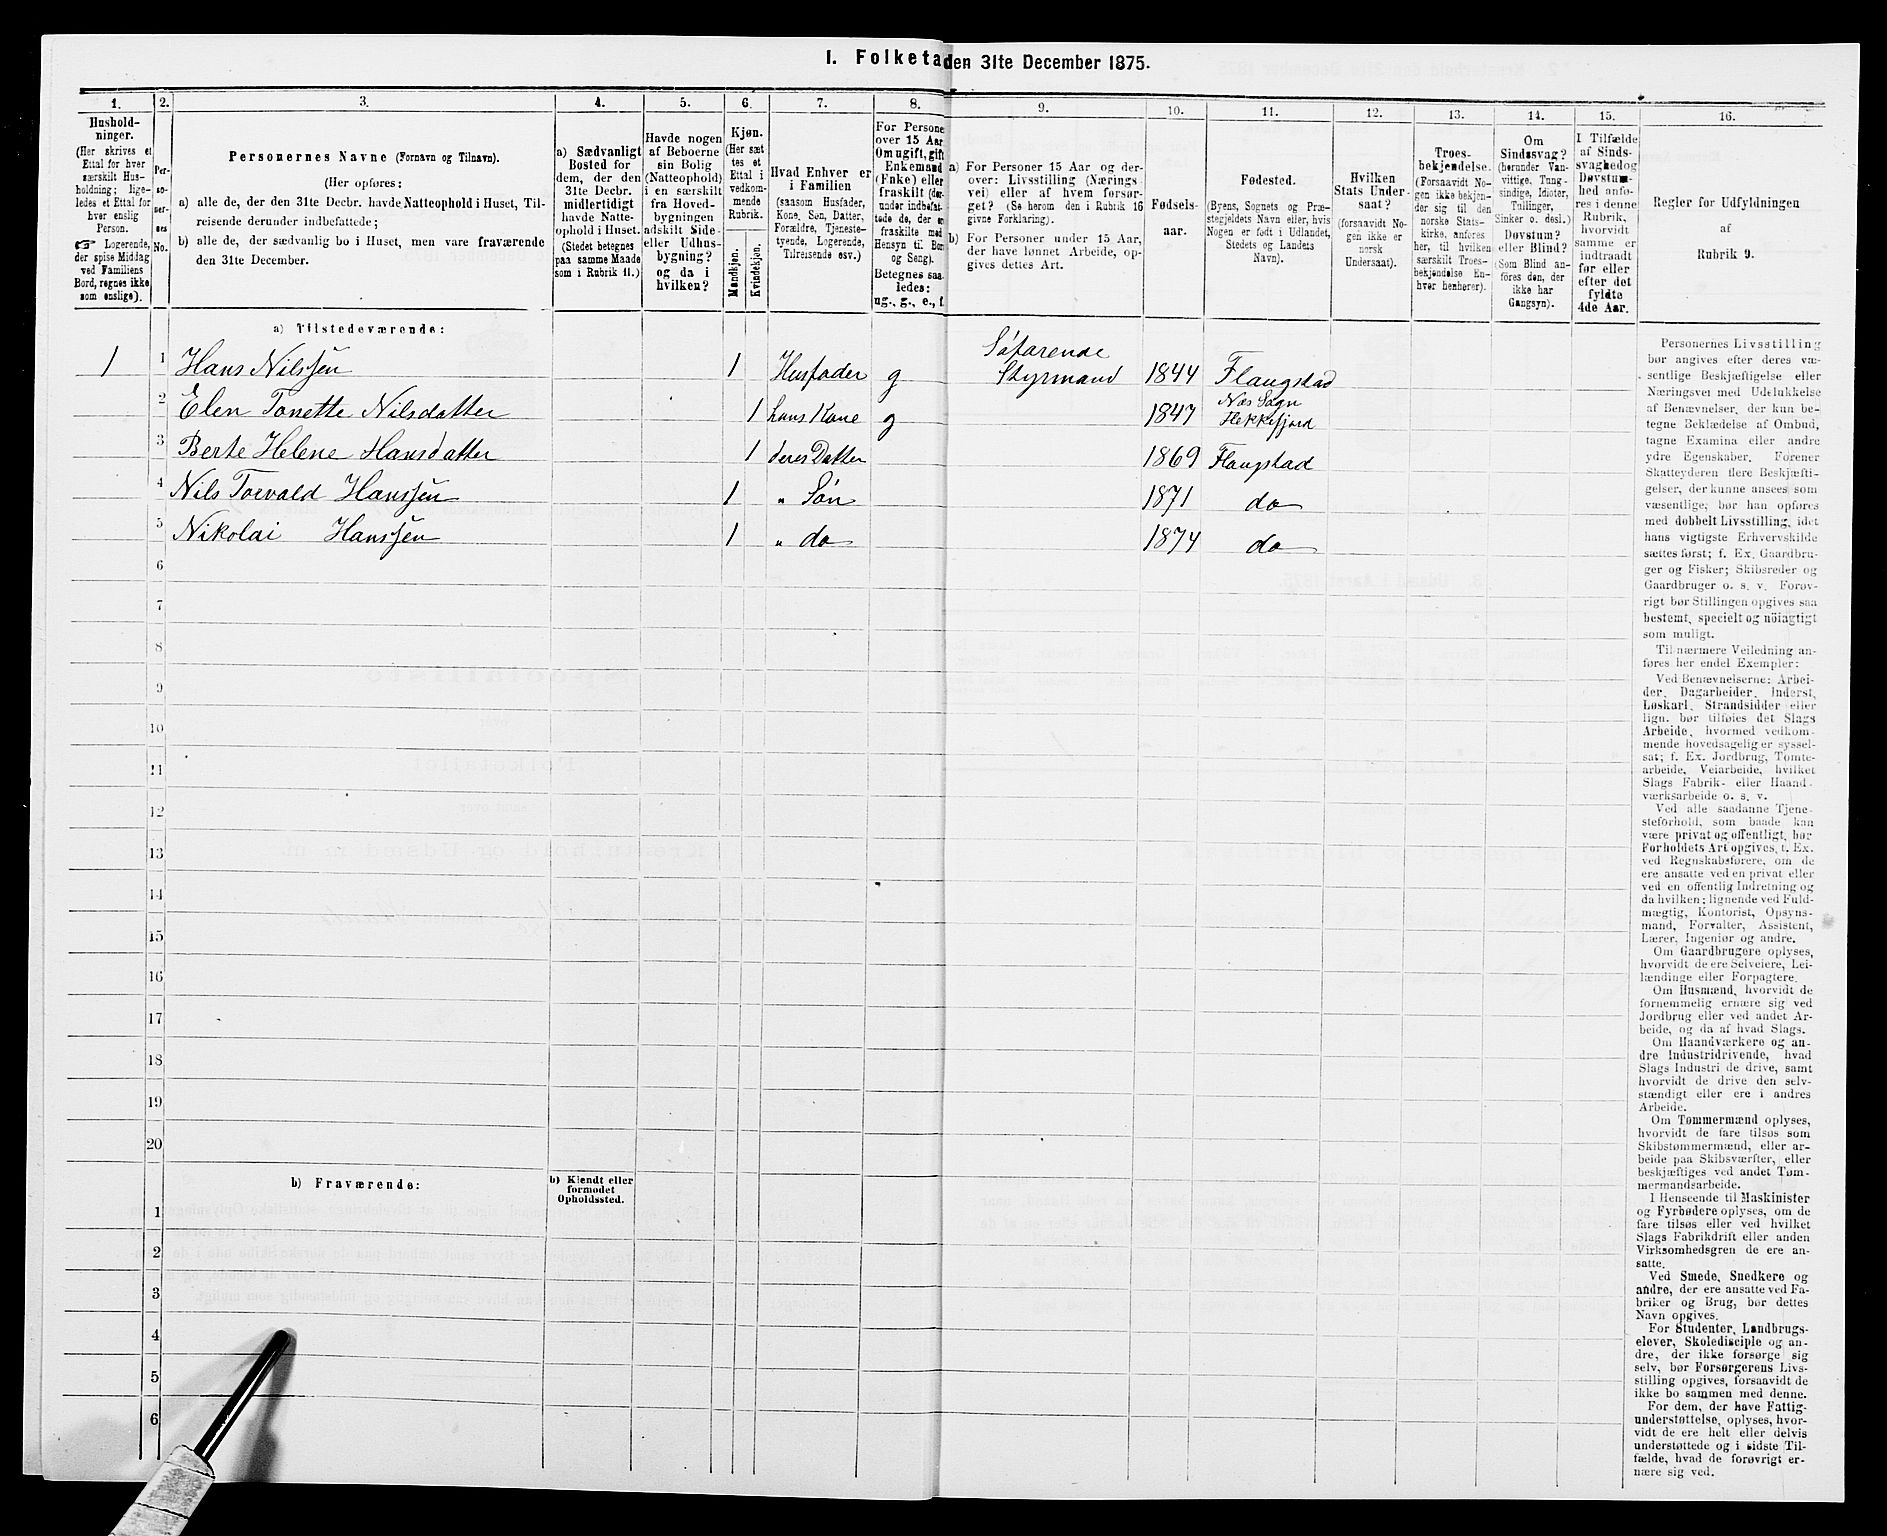 I. Folketa
den 31te December 1875.
1.
2.
3.
4.
5.
6.
7.
8.
9.
10.
11.
12.
13.
14.
15.
16.
Hushold-
ninger.
(Her skrives et
Ettal for hver
særskilt Hus-
holdning; lige-
ledes et Ettal for
hver enslig
Person.
☞ Logerende,
der spise Middag
ved Familiens
Bord, regnes ikke
som enslige).
Per-
so-
ner-
nes
No.
Personernes Navne (Fornavn og Tilnavn).
(Her opføres:
a) alle de, der den 31te Decbr. havde Natteophold i Huset, Til-
reisende derunder indbefattede;
b) alle de, der sædvanlig bo i Huset, men vare fraværende
den 31te December.
a) Sædvanligt
Bosted for
dem, der den
31te Decbr.
midlertidigt
havde Natte-
ophold i Huset.
(Stedet betegnes
paa samme Maade
som i Rubrik 11.)
Havde nogen
af Beboerne
sin Bolig
(Natteophold)
i en særskilt
fra Hoved-
bygningen
adskilt Side-
eller Udhus-
bygning?
og da i
hvilken?
Kjøn.
(Her sæt
tes et
Ettal i
vedkom-
mende
Rubrik.
Mandkjøn.
Kvindekjøn.
Hvad Enhver er
i Familien
(saasom Husfader,
Kone, Søn, Datter,
Forældre, Tjeneste-
tyende, Logerende,
Tilreisende osv.)
For Persone
over 15 Aar
Om ugift, gift
Enkemand
(Enke) eller
fraskilt (der-
under indbefat-
tede de, der er
fraskilte med
Hensyn til Bor
og Seng).
Betegnes saa-
ledes:
ug., g., e., f.
a) For Personer 15 Aar og der-
over: Livsstilling (Nærings-
vei) eller af hvem forsør-
get? (Se herom den i Rubrik 16
givne Forklaring).
b) For Personer under 15 Aar,
der have lønnet Arbeide, op-
gives dettes Art.
Fødsels-
aar.
Fødested.
(Byens, Sognets og Præ-
stegjeldets Navn eller, hvis
Nogen er født i Udlandet,
Stedets og Landets
Navn).
Hvilken
Stats Under-
saat?
(forsaavidt No-
gen ikke er
norsk
Undersaat).
Troes-
bekjendelse.
(Forsaavidt No-
gen ikke bekjen-
der sig til den
norske Stats-
kirke, anføres
her, til hvilken
særskilt Troes-
bekjendelse En-
hver henhører).
Om
Sindssvag?
(herunder Van-
vittige, Tung-
sindige, Idioter,
Tullinger,
Sinker o. desl.)
Døvstum?
eller Blind?
(Som Blind an-
føres den, der
ikke har
Gangsyn).
I Tilfælde
af Sinds-
svaghed og
Døvstum-
hed anfø-
res i denne
Rubrik,
hvorvidt
samme er
indtraadt
før eller
efter det
fyldte
4de Aar.
Regler for Udfyldningen
af
Rubrik 9.
a) Tilstedeværende:
Søfarende
1 1 Hans Nilssen 1 Husfader g Styrmand 1844 Flaugstad
Næs Sogn
2 Elen Tonette Nilsdatter 1 hans Kone g 1847 Flekkefjord
3 Berte Helene Hansdatter 1 deres Datter 1869 Flaugstad
4 Nils Torvald Hanssen 1 " Søn 1871 do
5 Nikolai Hanssen 1 " do 1874 do
6
7
8
9
10
11
12
13
14
15
16
17
18
19
20
b) Fraværende:
b) Kjendt eller
formodet
Opholdssted.
1
2
3
4
5
6
Personernes Livsstilling
bør angives efter deres væ-
sentlige Beskjæftigelse eller
Næringsvei med Udelukkelse
af Benævnelser, der kun be-
tegne Beklædelse af Ombud,
tagne Examina eller andre
ydre Egenskaber. Forener
Skatteyderen flere Beskjæfti-
gelser, der kunne ansees som
væsentlige, bør han opføres
med dobbelt Livsstilling, idet
hans vigtigste Erhvervskilde
sættes først; f. Ex. Gaardbru-
ger og Fisker; Skibsreder og
Gaardbruger o. s. v. Forøv-
rigt bør Stillingen opgives saa
bestemt, specielt og nöiagtigt
som muligt.
Til nærmere Veiledning an-
føres her endel Exempler:
Ved Benævnelserne: Arbei-
der, Dagarbeider, Inderst,
Løskarl, Strandsidder eller
lign. bør tilføies det Slags
Arbeide, hvormed vedkom-
mende hovedsagelig er syssel-
sat; f. Ex. Jordbrug, Tomte-
arbeide, Veiarbeide, hvilket
Slags Fabrik- eller Haand-
værksarbeide o. s. v.
Ved alle saadanne Tjene-
steforhold, som baade kan
være privat og offentligt, bør
Forholdets Art opgives, t. Ex.
ved Regnskabsførere, om de
ere ansatte ved en privat eller
ved en offentlig Indretning og
da hvilken; lignende ved Fuld-
mægtig, Kontorist, Opsyns-
mand, Forvalter, Assistent,
Lærer, Ingeniør og andre.
Om Gaardbrugere oplyses,
hvorvidt de ere Selveiere, Lei-
lændinge eller Forpagtere.
Om Husmænd, hvorvidt de
fornemmelig ernære sig ved
Jordbrug eller ved andet Ar-
beide, og da af hvad Slags.
Om Haandværkere og an-
dre Industridrivende, hvad
Slags Industri de drive, samt
hvorvidt de drive den selv-
stændigt eller ere i andres
Arbeide.
Om Tømmermænd oplyses,
hvorvidt de fare tilsøs som
Skibstømmermænd, eller ar-
beide paa Skibsværfter, eller
beskjæftiges ved andet Tøm-
mermandsarbeide.
I Henseende til Maskinister
og Fyrbødere oplyses, om de
fare tilsøs eller ved hvilket
Slags Fabrikdrift eller anden
Virksomhedsgren de ere an-
satte.
Ved Smede, Snedkere og
andre, der ere ansatte ved Fa-
briker og Brug, bør dettes
Navn opgives.
For Studenter, Landbrugs-
elever, Skoledisciple og an-
dre, der ikke forsørge sig
selv, bør Forsørgerens Livs-
stilling opgives, forsaavidt de
ikke bo sammen med denne.
For dem, der have Fattig-
understøttelse, oplyses, hvor-
vidt de ere helt eller delvis
understøttede og i sidste Til-
fælde, hvad de forøvrigt er-
nære sig ved.